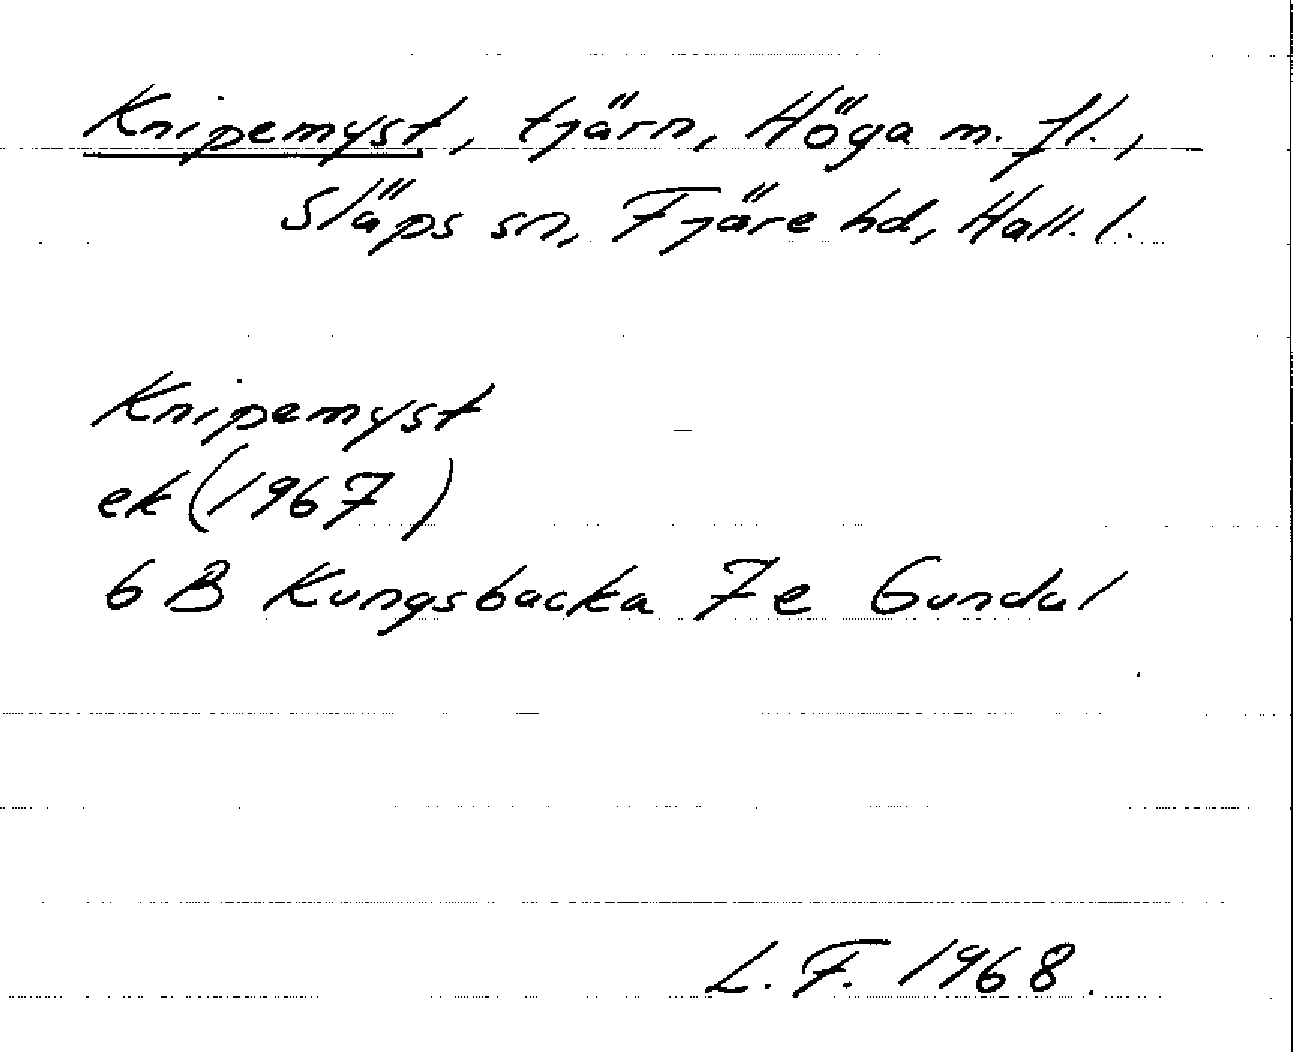 Knipemyst, tjärn, Höga m. fl.,
Släps sn, Fjäre hd, Hall. l.
Knipemyst
ek (1967)
6 B Kungsbacka 7e Gundal
L. F. 1968.